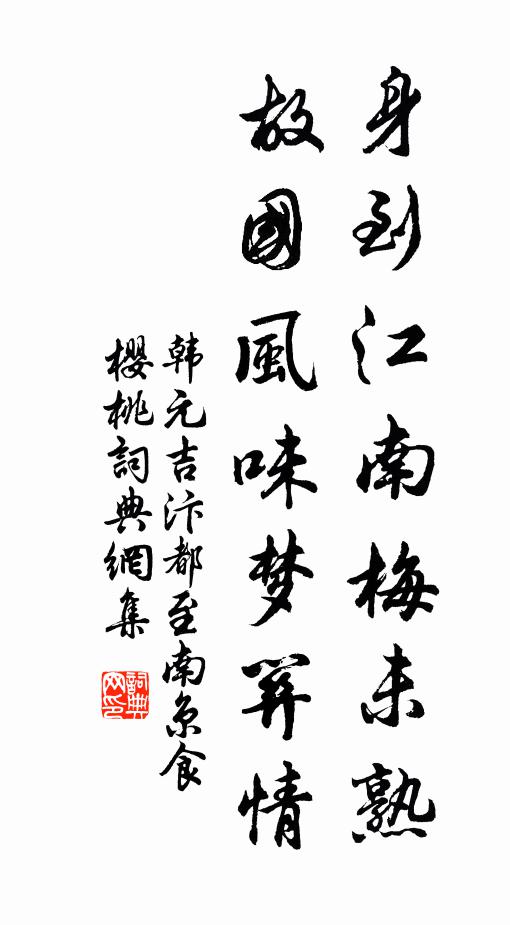 身到江南梅未熟
故國風味梦關情
韩元吉汴都至南京食
櫻桃詞典網集
詞典
网印